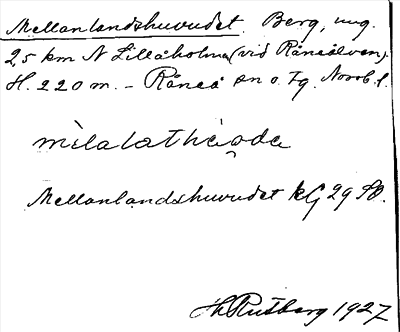 Mellanlandshuvudet. Berg, ung.
25 km N Lillåholm (vid Råneälven).
H. 220 m. – Råneå sn o. tg. Norrb. l.
Mellanlandshuvudet kG 29 SV.
H Rutberg 1927